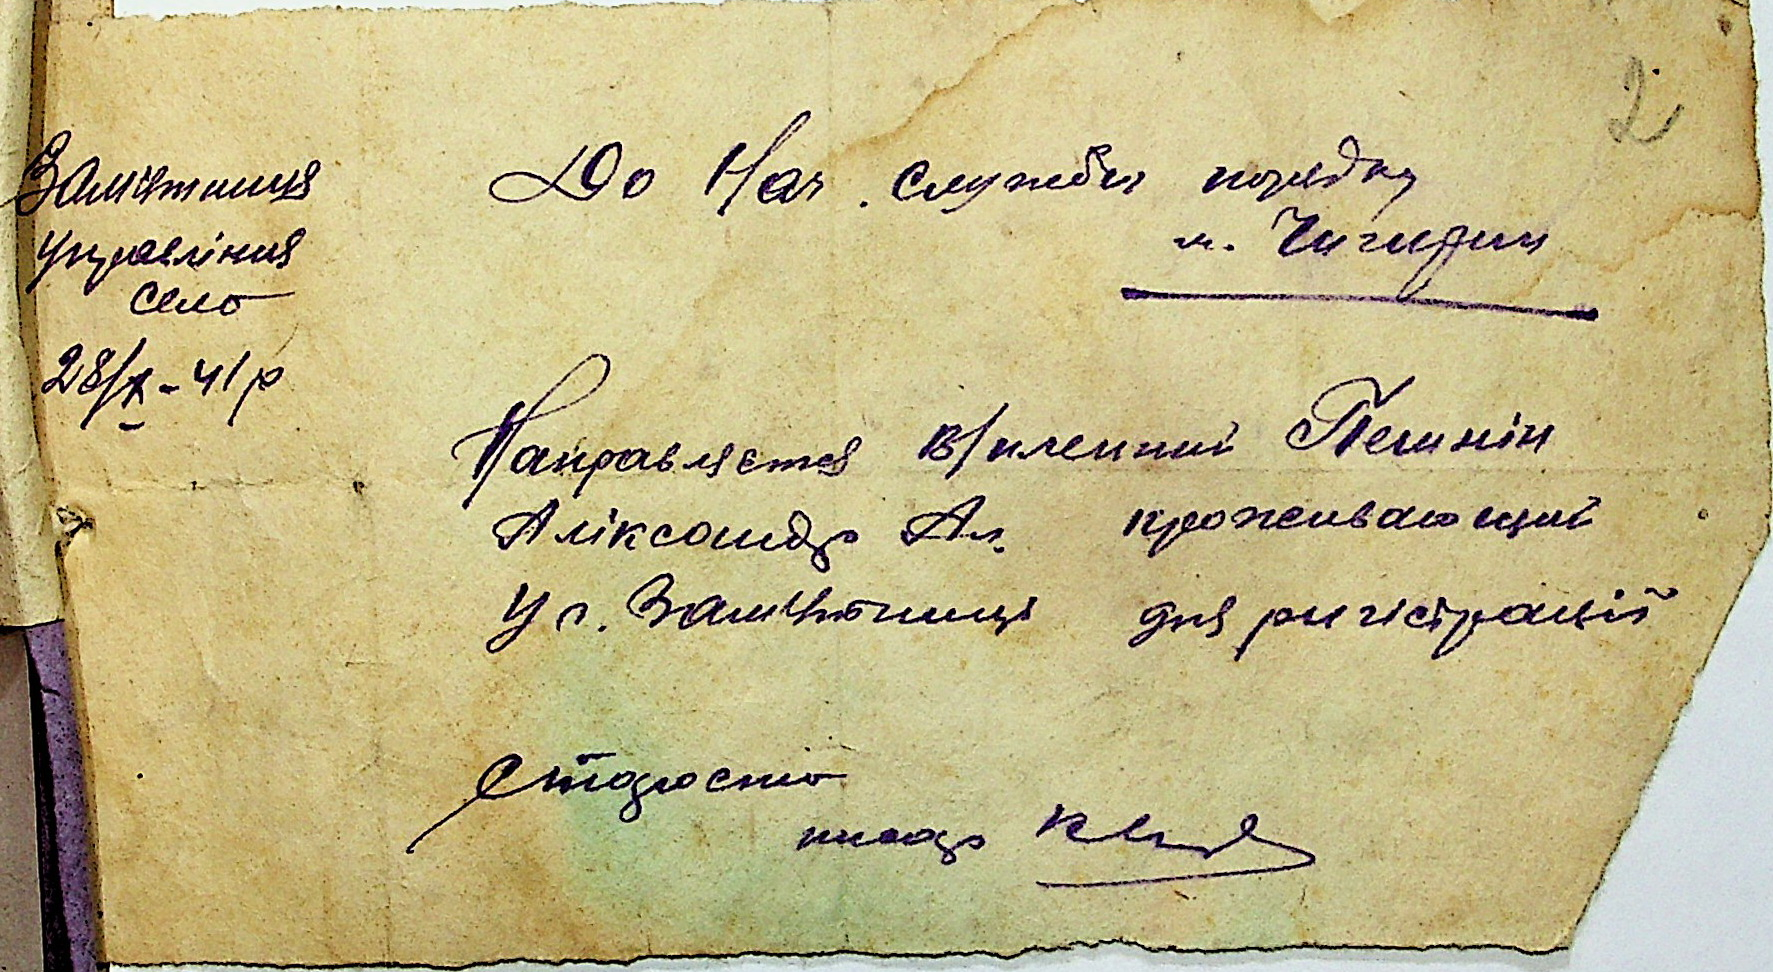 2
Замятниця
Управління
село
28/X-41р
До Нач. служби порядку
м. Чигирин
Направляєтся в/пленний
Аліксандр Ал. проживающий
У с. Замятниці для ригістрації
Староста
писар